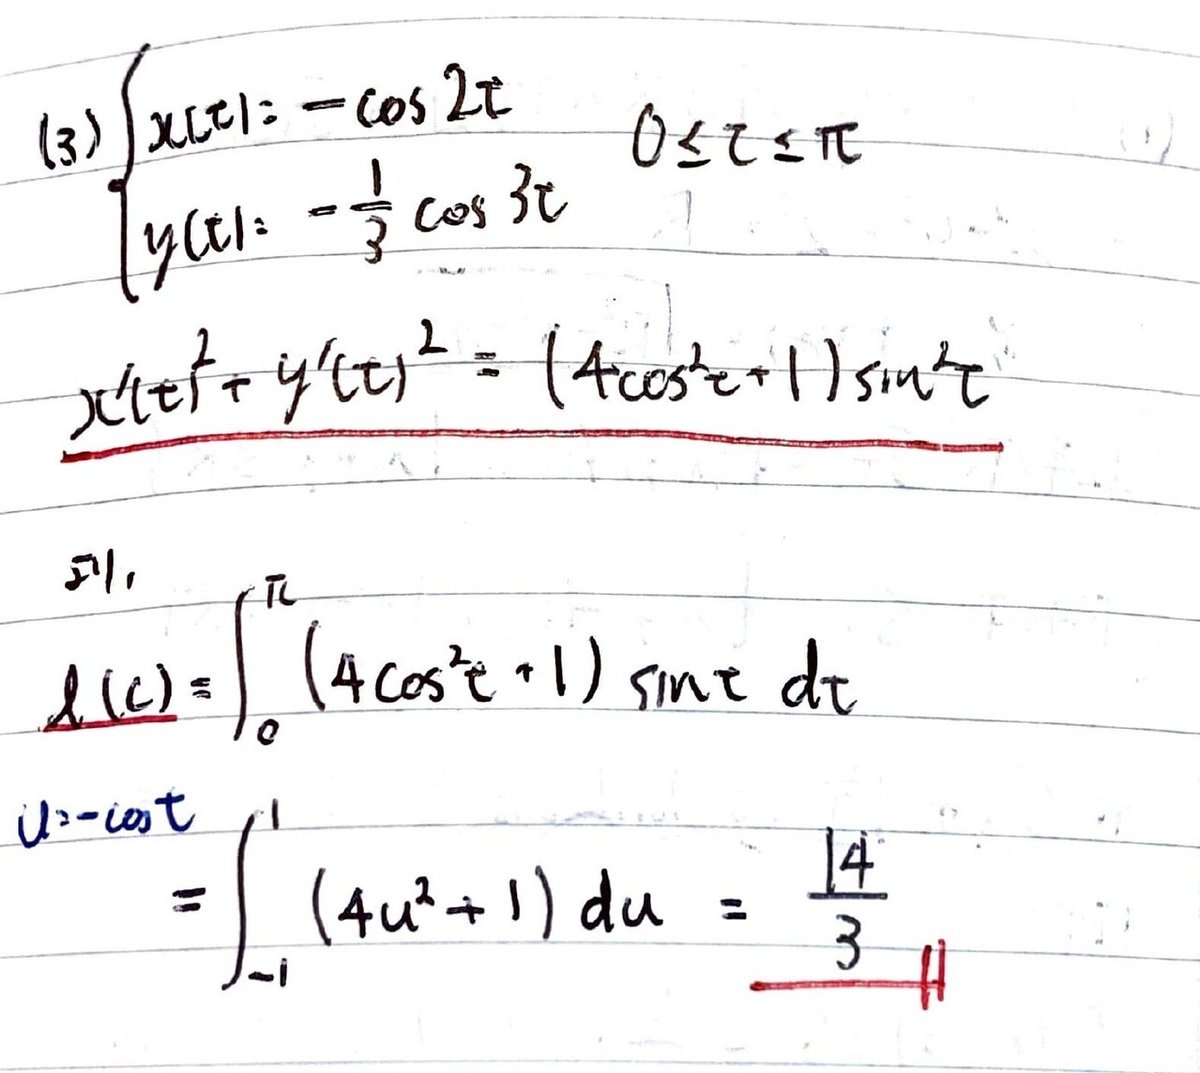 (3) { x(t) = -cos 2t  0 ≤ t ≤ π
y(t) = -1/3 cos 3t
x'(t)² + y'(t)² = (4cos²t + 1) sin²t
より,
l(c) = ∫₀^π (4cos²t + 1) sint dt
u = -cos t
= ∫₋₁^1 (4u² + 1) du = 14/3